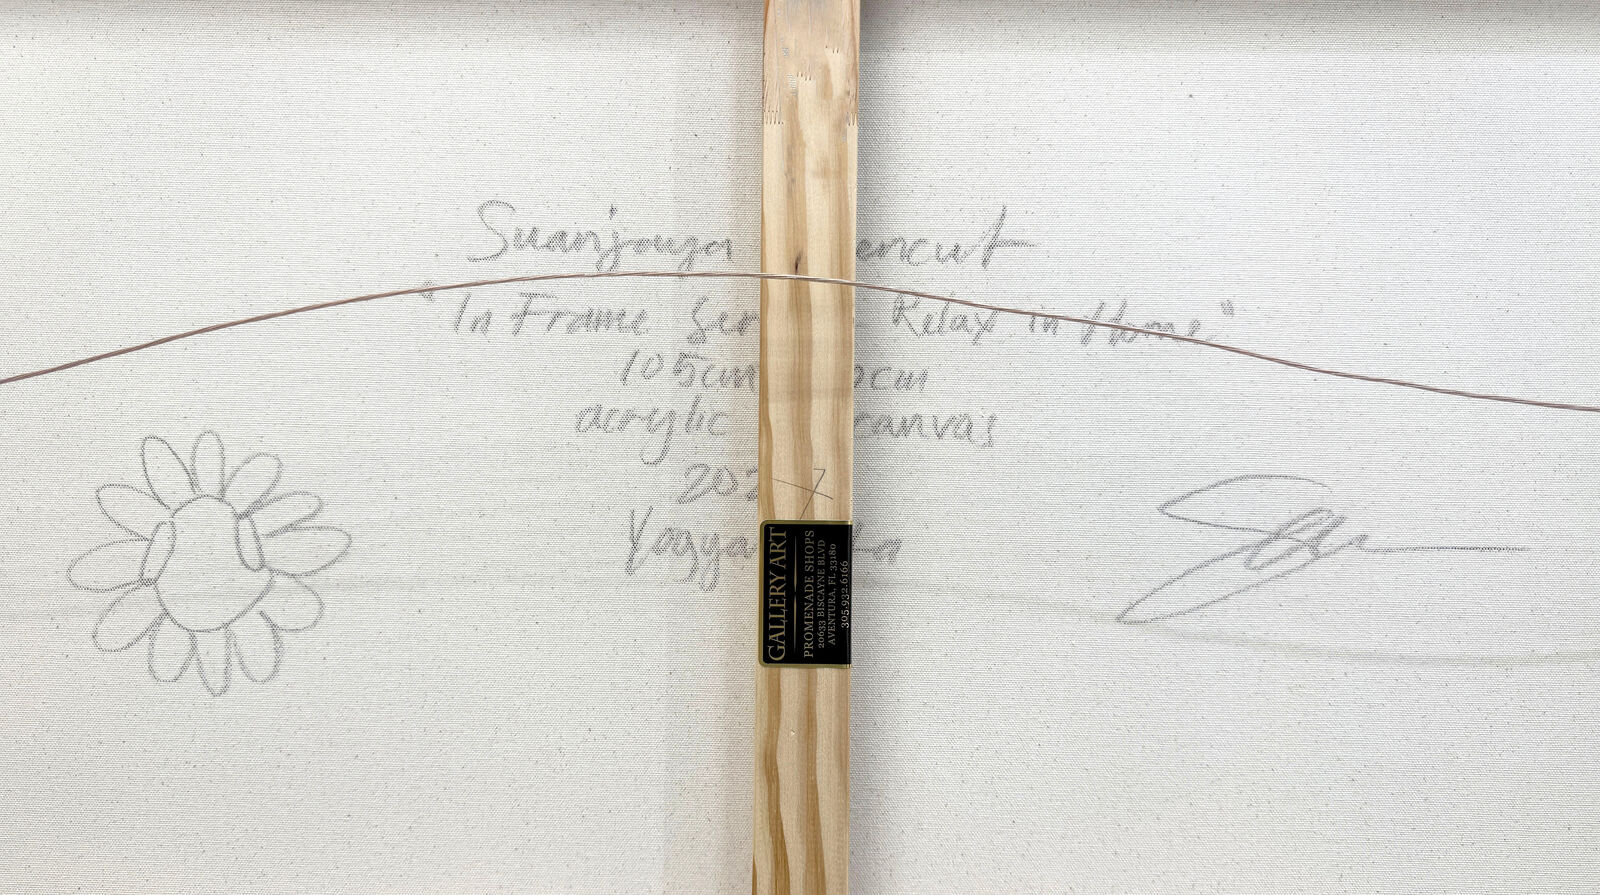 Suanjaya encut
"In Frame Ser Relax in Home."
105cm 0cm
acrylic canvas
202
Yogya ta
7
GALLERY ART
PROMENADE SHOPS
20633 BISCAYNE BLVD
AVENTURA, FL 33180
305.932.6166